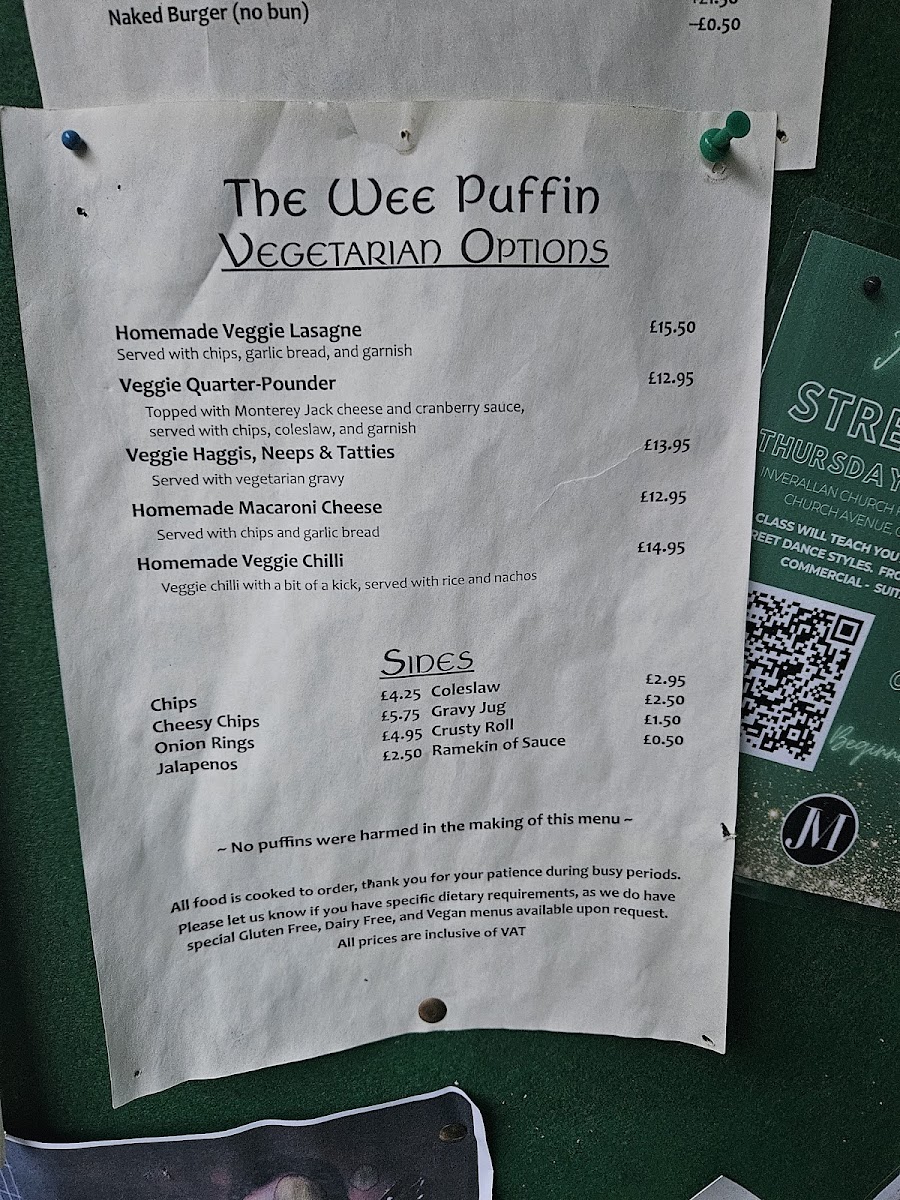 Naked Burger (no bun)
–£0.50
The Wee Puffin
Vegetarian Options
Homemade Veggie Lasagne £15.50
Served with chips, garlic bread, and garnish
Veggie Quarter-Pounder £12.95
Topped with Monterey Jack cheese and cranberry sauce,
served with chips, coleslaw, and garnish
Veggie Haggis, Neeps & Tatties £13.95
Served with vegetarian gravy
Homemade Macaroni Cheese £12.95
Served with chips and garlic bread
Homemade Veggie Chilli £14.95
Veggie chilli with a bit of a kick, served with rice and nachos
Sides
Chips £4.25 Coleslaw £2.95
Cheesy Chips £5.75 Gravy Jug £2.50
Onion Rings £4.95 Crusty Roll £1.50
Jalapenos £2.50 Ramekin of Sauce £0.50
~ No puffins were harmed in the making of this menu ~
All food is cooked to order, thank you for your patience during busy periods.
Please let us know if you have specific dietary requirements, as we do have
special Gluten Free, Dairy Free, and Vegan menus available upon request.
All prices are inclusive of VAT
STRE
THURSDAY
INVERALLAN CHURCH
CHURCH AVENUE
CLASS WILL TEACH YOU
REET DANCE STYLES. FRO
COMMERCIAL - SUIT
Beginn
JM